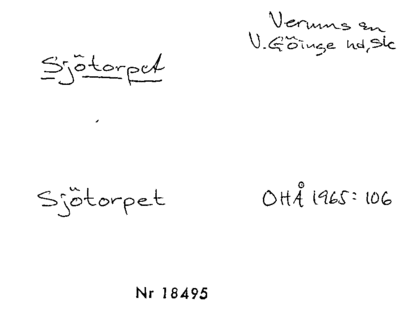 Verums sn
V. Göinge hd, Sk
Sjötorpet
Sjötorpet
OHÅ 1965: 106
Nr 18495